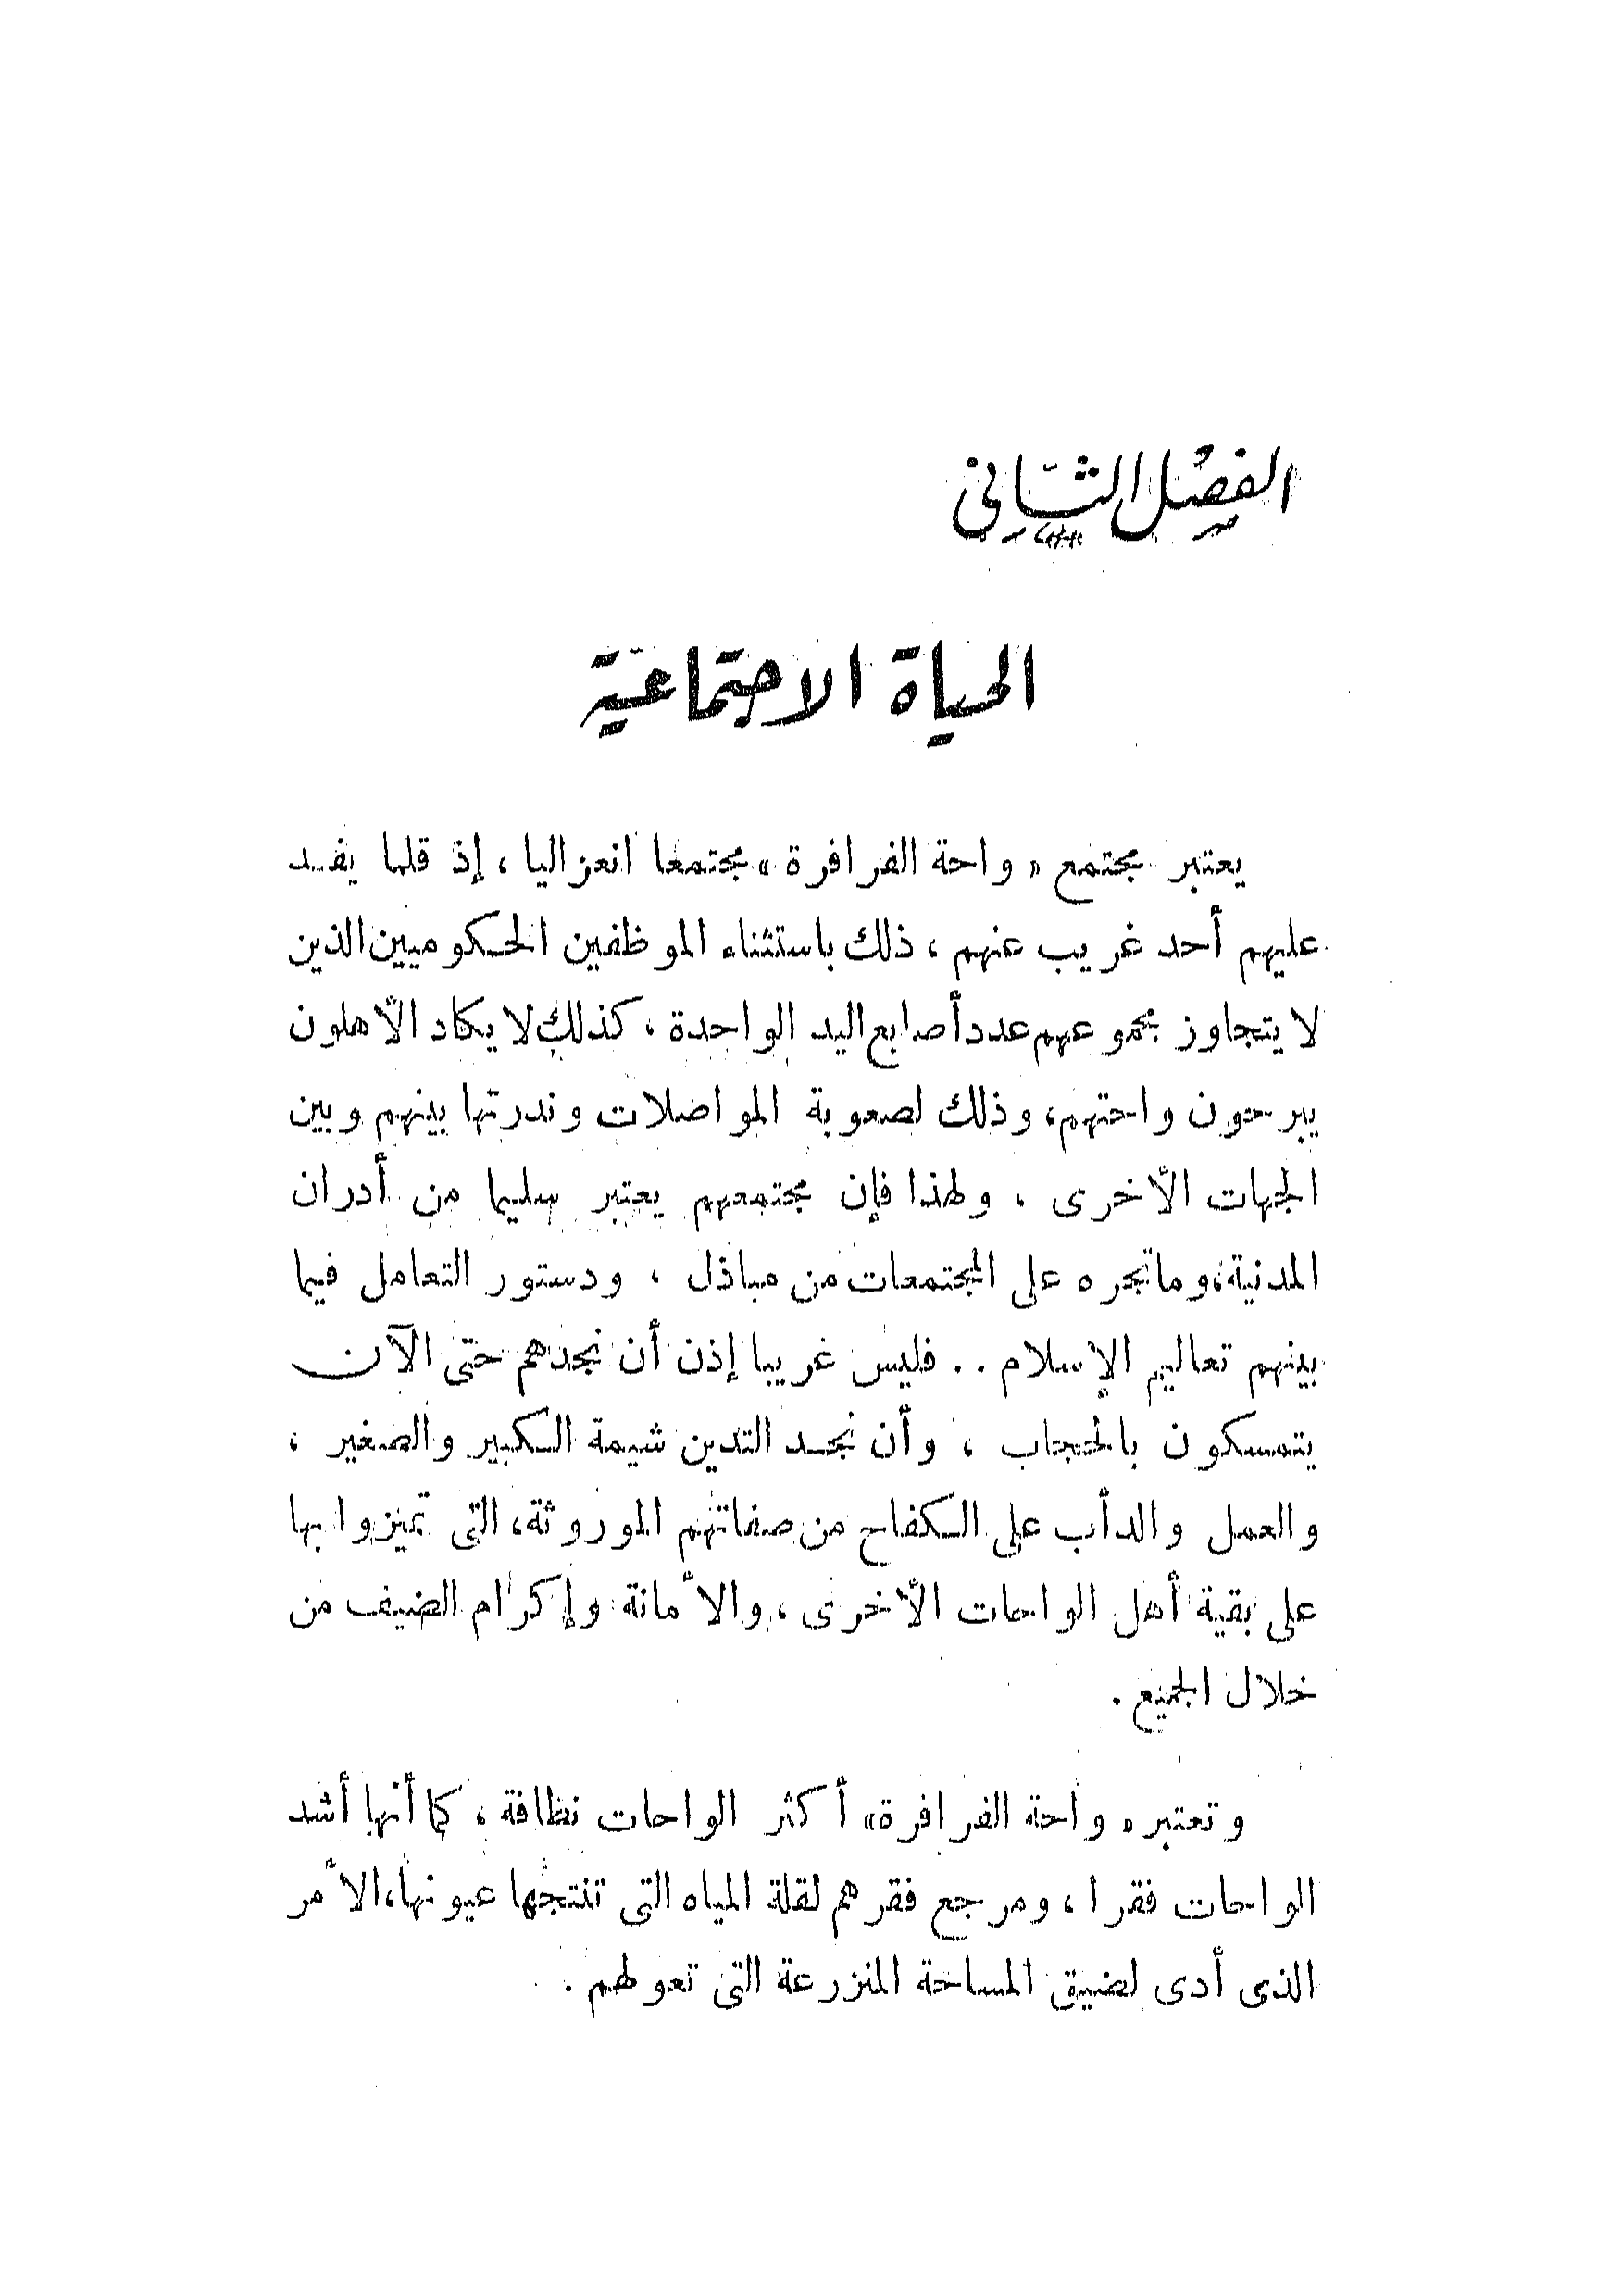 الفصل الثاني
الحياة الاجتماعية
يعتبر مجتمع « واحة الفرافرة » مجتمعا انعزاليا ، إذ قلما يفد
عليهم أحد غريب عنهم ، ذلك باستثناء الموظفين الحكوميين الذين
لا يتجاوز مجموعهم عدد أصابع اليد الواحدة ، كذلك لا يكاد الأهلون
يبرحون واحتهم ، وذلك لصعوبة المواصلات وندرتها بينهم وبين
الجهات الأخرى . ولهذا فإن مجتمعهم يعتبر سليما من أدران
المدنية ، وما تجره على المجتمعات من مباذل ، ودستور التعامل فيما
بينهم تعاليم الإسلام . . فليس غريبا إذن أن نجدهم حتى الآن
يتمسكون بالحجاب ، وأن نجد التدين شيمة الكبير والصغير ،
والعمل والدأب على الكفاح من صفاتهم الموروثة ، التى تميزوا بها
على بقية أهل الواحات الأخرى ، والأمانة وإكرام الضيف من
خلال الجميع .
وتعتبر « واحة الفرافرة » أكثر الواحات نظافة ، كما أنها أشد
الواحات فقرا ، ومرجع فقرهم لقلة المياه التى تنتجها عيونها ، الأمر
الذى أدى لضيق المساحة المنزرعة التى تعولهم .